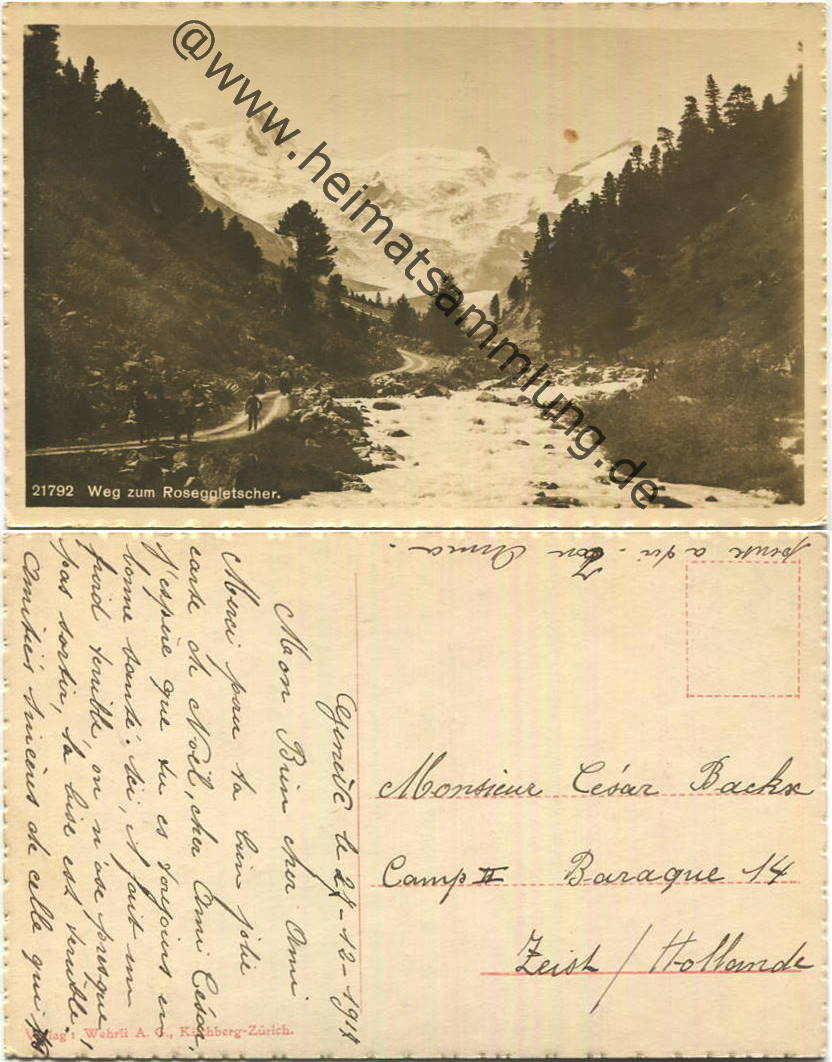 @www.heimatsammlung.de
21792 Weg zum Roseggletscher.
Genève le 27-12-1917
Mon Bien cher Ami
Merci pour ta bien jolie
carte de Noël, cher Ami César,
J'espère que tu es toujours en
bonne santé. Ici, il fait un
froid terrible, on n'ose presque
pas sortir, la bise est terrible.
Amitiés sincères de celle qui
pense a toi. Ton Anna.
Monsieur César Backx
Camp II Baraque 14
Zeist / Hollande
Verlag: Wehrli A. G., Kilchberg-Zürich.